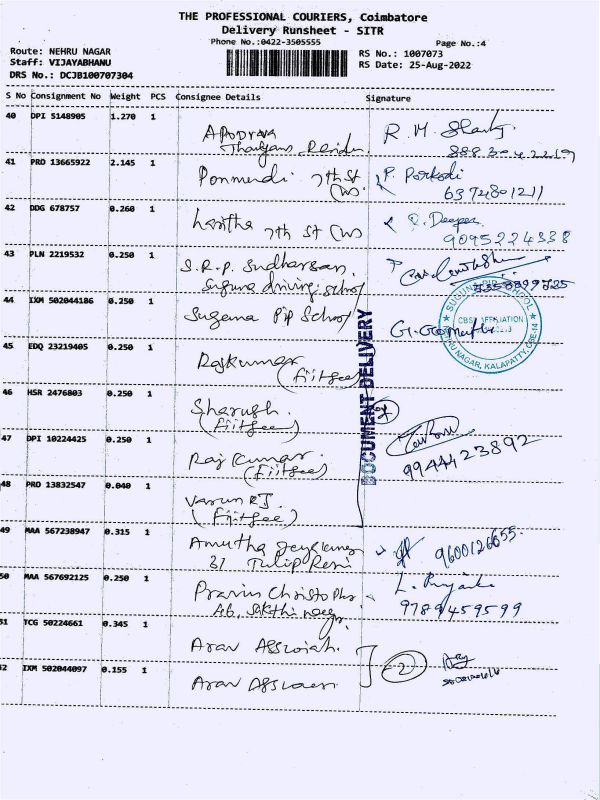 THE PROFESSIONAL COURIERS, Coimbatore
Delivery Runsheet - SITR
Phone No.:0422-3505555
Page No.:4
Route: NEHRU NAGAR
RS No.: 1007073
Staff: VIJAYABHANU
RS Date: 25-Aug-2022
DRS No.: DCJB100707304
S No Consignment No Weight PCS Consignee Details Signature
40 DPI 5148905 1.270 1
41 PRD 13665922 2.145 1
Ponmudi 7th St P. Porkodi
6374801211
42 DDG 678757 0.260 1
Haritha 7th St
9095224338
43 PLN 2219532 0.250 1
S.R.P. Sudharsan.
Suguna driving school
44 IXM 502044186 0.250 1
Suguna Pip School
SUGUNA PIP SCHOOL
CBSE AFFILIATION
NEHRU NAGAR, KALAPATTY, CBE-14
45 EDQ 23219405 0.250 1
Rajkumar
(Fiitjee)
DOCUMENT DELIVERY
46 HSR 2476803 0.250 1
(Fiitjee)
47 DPI 10224425 0.250 1
Raj Kumar.
(Fiitjee)
9944423892
48 PRD 13832547 0.040 1
Varun RJ.
(Fiitjee)
49 MAA 567238947 0.315 1
Amutha Jeykumar
31 Tulip 9600126655
50 MAA 567692125 0.250 1
Pravin Christopher
A6, Sakthi nagar 9789459599
51 TCG 50224661 0.345 1
Arav
52 IXM 502044097 0.155 1
Arav
2